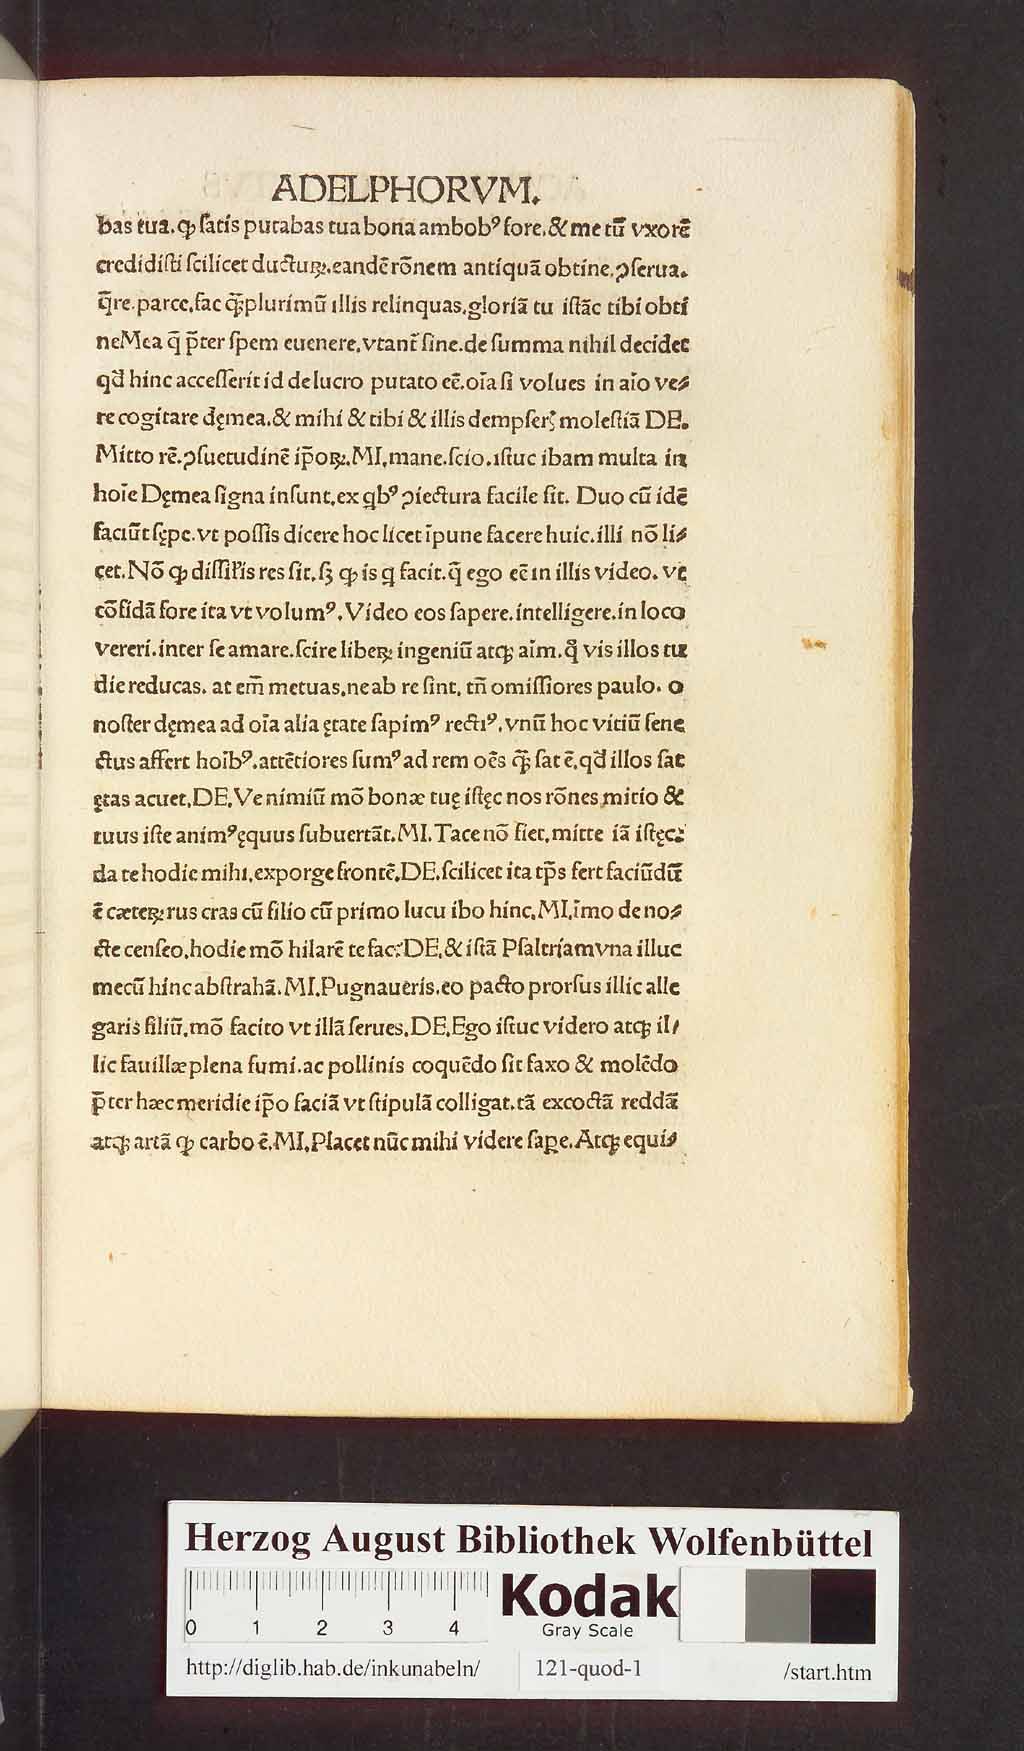 ADELPHORVM.
bas tua. ꝙ ſatis putabas tua bona ambobꝰ fore. & me tū vxorē
credidiſti ſcilicet ductuꝝ. eandē rōnem antiquā obtine. ꝯſerua.
q̄re. parce. fac q̄ꝫ plurimū illis relinquas. gloriā tu iſtāc tibi obti
neMea q̄ p̄ter ſpem euenere. vtant᷑ ſine. de ſumma nihil decidet
qd̄ hinc acceſſerit id de lucro putato eē. oīa ſi volues in aīo ve⸗
re cogitare dęmea. & mihi & tibi & illis dempſerꝭ moleſtiā DE.
Mitto rē. ꝯſuetudinē ip̄oꝝ. MI. mane. ſcio. iſtuc ibam multa in
hoīe Dęmea ſigna inſunt. ex qbꝰ ꝯiectura facile fit. Duo cū idē
faciūt ſępe. vt poſſis dicere hoc licet īpune facere huic. illi nō li⸗
cet. Nō ꝙ diſſīl'is res ſit. ſꝫ ꝙ is q facit. q̄ ego eē in illis video. vt
cōfidā fore ita vt volumꝰ. Video eos ſapere. intelligere. in loco
vereri. inter ſe amare. ſcire libeꝝ ingeniū atqꝫ aīm. q̄ vis illos tu
die reducas. at em̄ metuas. ne ab re ſint. tn̄ omiſſiores paulo. o
noſter dęmea ad oīa alia ętate ſapimꝰ rectiꝰ. vnū hoc vitiū ſene
ctus affert hoībꝰ. attētiores ſumꝰ ad rem oēs q̄ꝫ ſat ē. qd̄ illos ſat
ętas acuet. DE. Ve nimiū mō bonæ tuę iſtęc nos rōnes mitio &
tuus iſte animꝰ ęquus ſubuertāt. MI. Tace nō fiet. mitte iā iſtęc:
da te hodie mihi. exporge frontē. DE. ſcilicet ita tp̄s fert faciūdū
ē cæteꝝ rus cras cū filio cū primo lucu ibo hinc. MI. īmo de no⸗
cte cenſeo. hodie mō hilarē te fac: DE. & iſtā Pſaltriam vna illuc
mecū hinc abſtrahā. MI. Pugnaueris. eo pacto prorſus illic alle
garis filiū. mō facito vt illā ſerues. DE. Ego iſtuc videro atqꝫ il⸗
lic fauillæ plena fumi. ac pollinis coquēdo ſit faxo & molēdo
p̄ter hæc meridie ip̄o faciā vt ſtipulā colligat. tā excoctā reddā
atqꝫ artā ꝙ carbo ē. MI. Placet nūc mihi videre ſape. Atqꝫ equi⸗
Herzog August Bibliothek Wolfenbüttel
Kodak
Gray Scale
0 1 2 3 4
http://diglib.hab.de/inkunabeln/ 121-quod-1 /start.htm